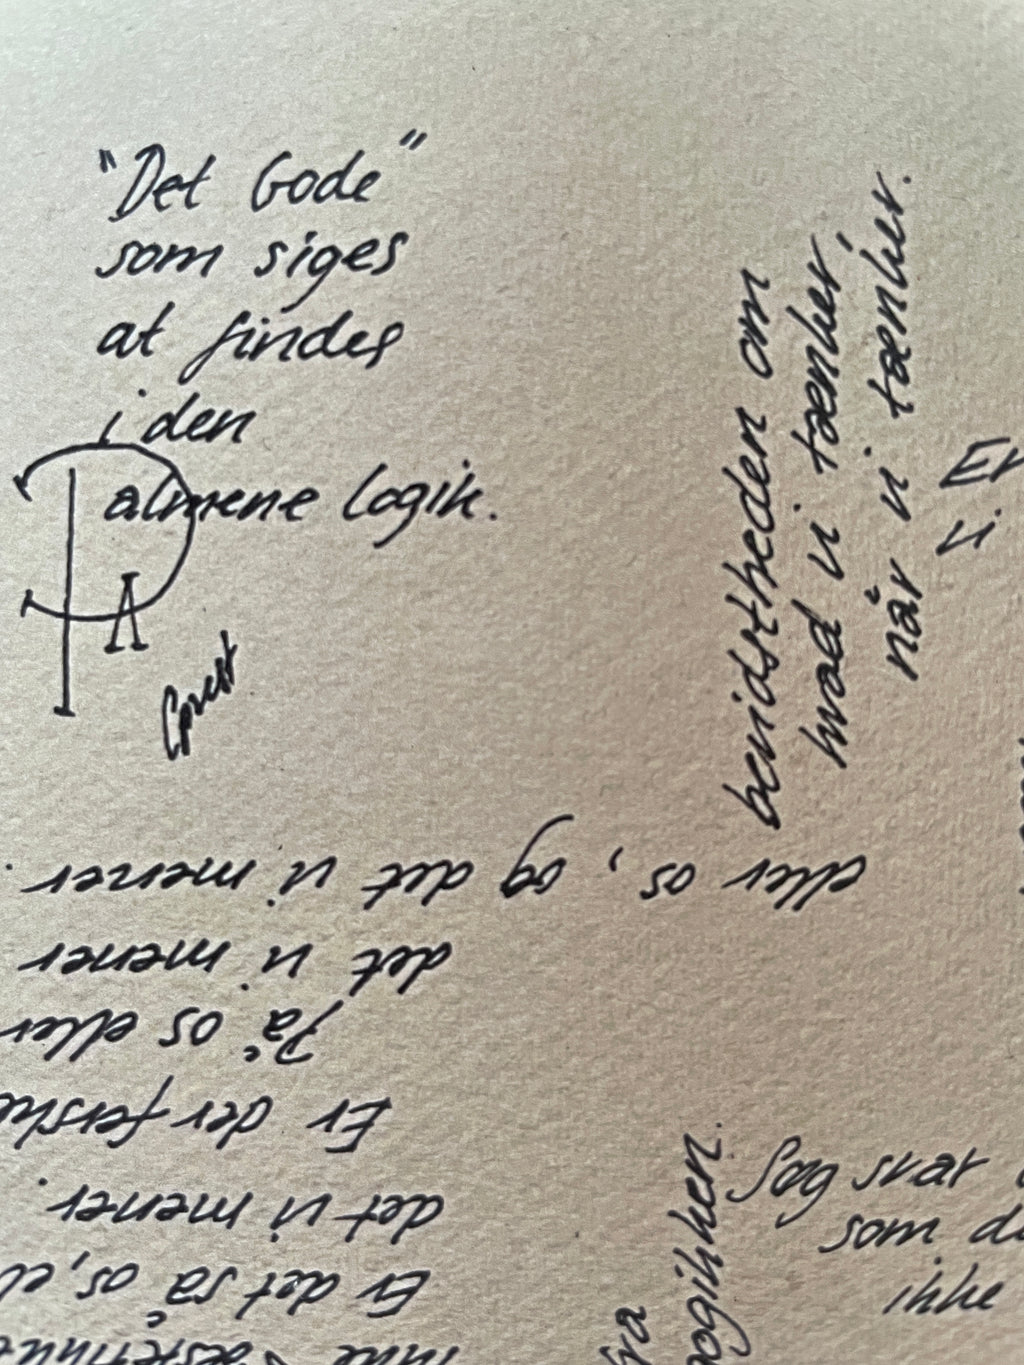 "Det Gode"
som siges
at findes
i den
almene logik.
PA
bevidstheden om
hvad vi tænker,
når vi tænker.
Er
vi
eller os, og det vi mener.
det vi mener
På os eller
Er der forske
det vi mener.
Er det så os, el
ikke
fra
logikken.
Søg svar
som de
ikke